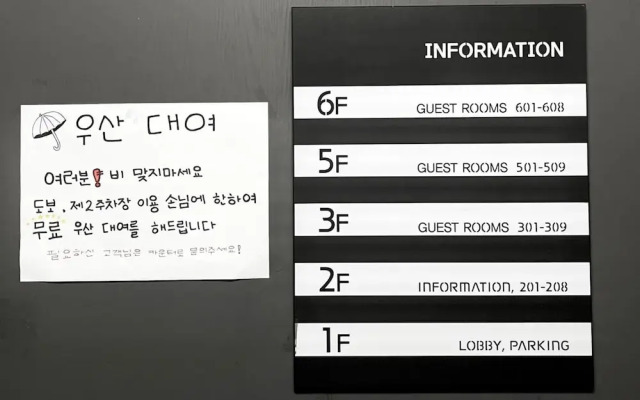 우산 대여
여러분! 비 맞지마세요
도보, 제2주차장 이용 손님에 한하여
무료 우산 대여를 해드립니다
필요하신 고객님은 카운터로 문의주세요!
INFORMATION
6F GUEST ROOMS 601-608
5F GUEST ROOMS 501-509
3F GUEST ROOMS 301-309
2F INFORMATION, 201-208
1F LOBBY, PARKING